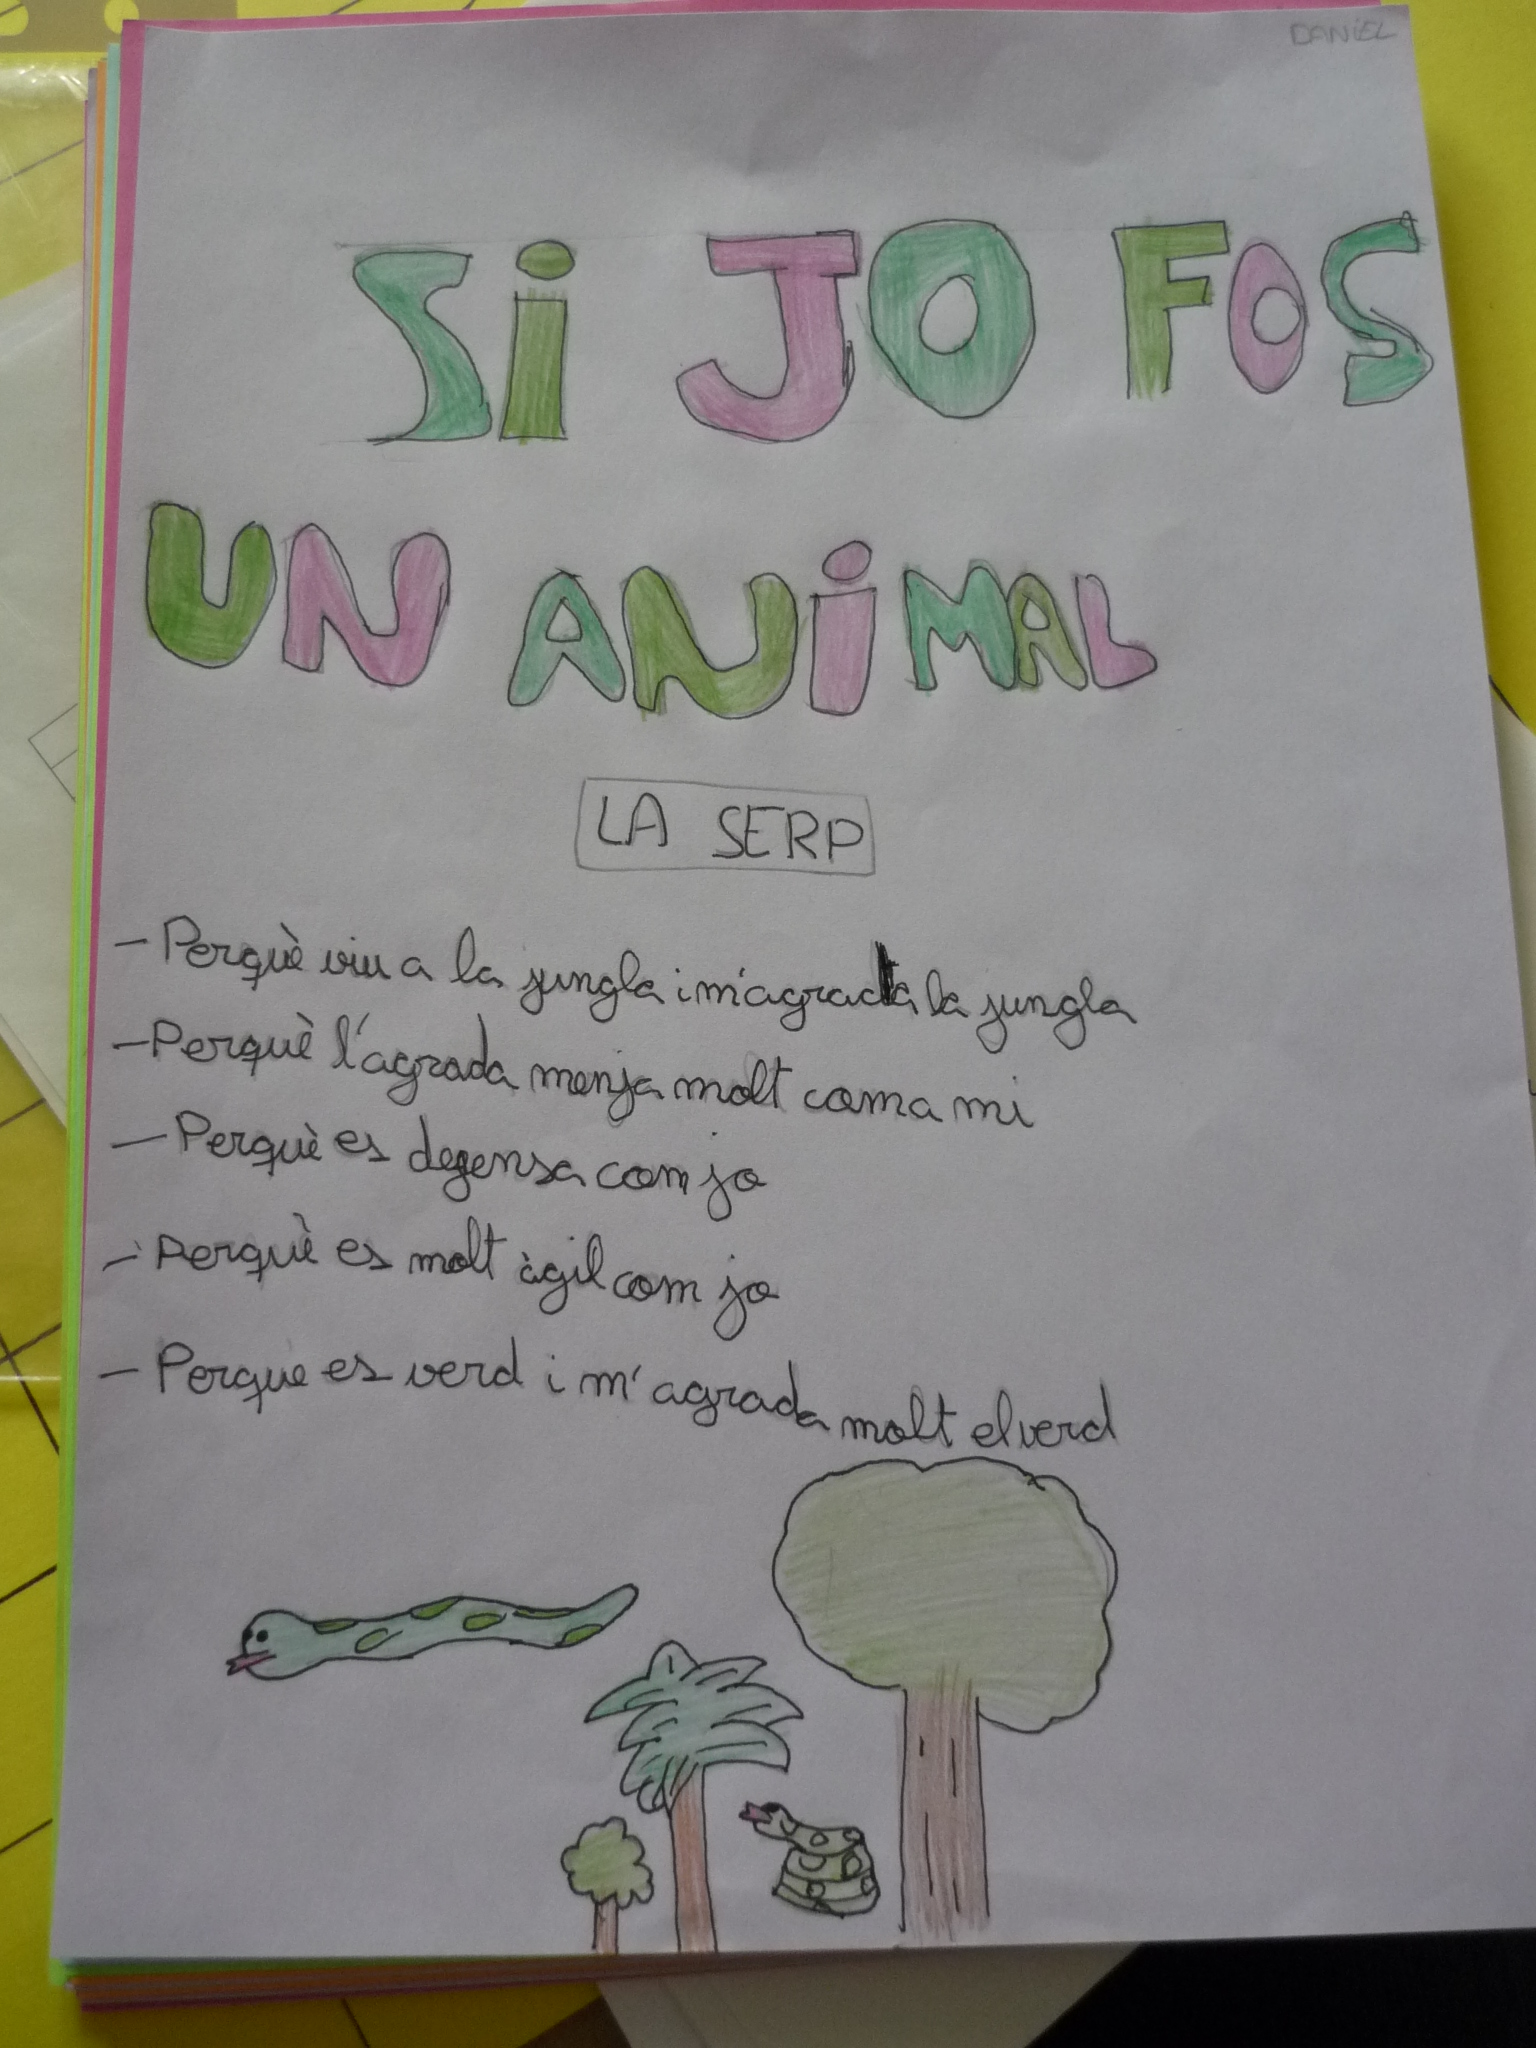 DANiEL
Si JO FOS
UN ANiMAL
LA SERP
- Perquè viu a la jungla i m'agrada la jungla
- Perquè l'agrada menja molt coma mi
- Perquè es defensa com jo
- Perquè es molt àgil com jo
- Perque es verd i m'agrada molt el verd